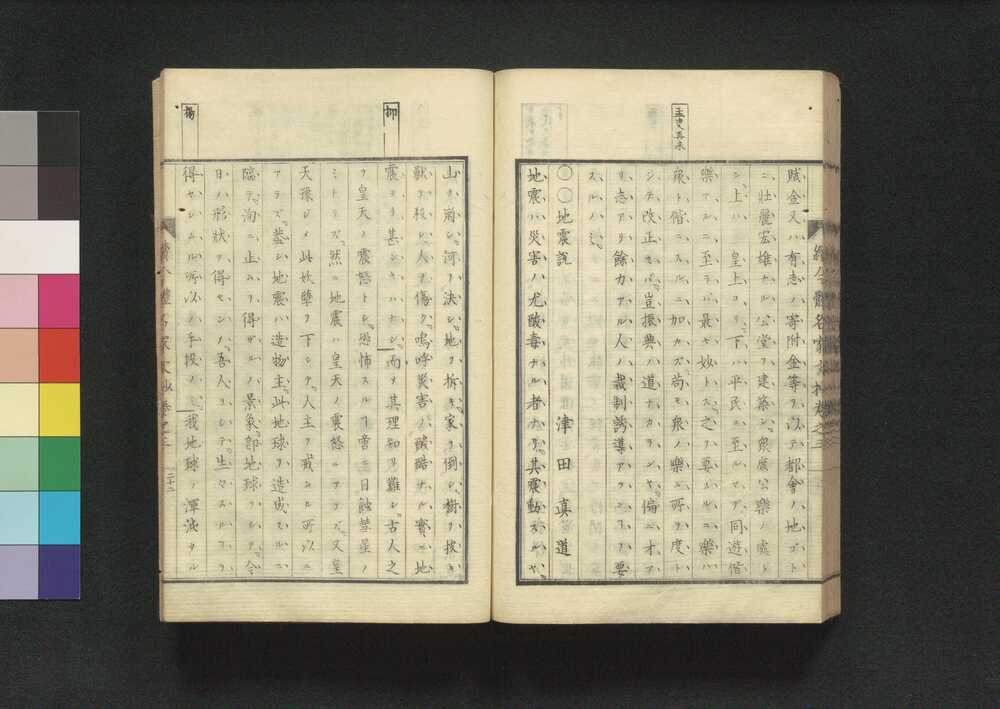 孟史再来
賦金又ハ有志ノ寄附金等ヲ以テ都會ノ地ゴト
ニ壮麗宏雄ナル公堂ヲ建築シ衆庶公樂ノ處ト
シ上ハ皇上ヨリ下ハ平民ニ至ルマデ同遊偕
樂スルニ至ラバ最モ妙トス之ヲ要スルニ樂ハ
衆ト偕ニスルニ加カズ尚モ衆ノ樂ム所ヲ度ト
シテ改正セバ豈振興ノ道ナカランヤ偏ニ才ア
リ志アリ餘力アル人ノ裁制誘導アランヿヲ要
スルハミ
〇〇地震説
津田真道
地震ハ災害ノ尤酸毒ナル者ナリ其震動スルヤ
抑
揚
山ヲ崩シ河ヲ決シ地ヲ拆キ家ヲ倒シ樹ヲ拔キ
獣ヲ殺シ人ヲ傷ク嗚呼災害ノ酸酷ナル實ニ地
震ヨリ甚シキハナシ而メ其理知リ難シ古人之
ヲ皇天ノ震怒トシ恐怖スルヿ啻ニ日蝕彗星ノ
ミナラズ然ニ地震ハ皇天ノ震怒ニアラズ又皇
天豫シメ此妖孽ヲ下シテ人主ヲ戒シムル所以ニ
アラズ蓋シ地震ハ造物主此地球ヲ造成スルニ
臨テ洵ニ止ムヲ得ザルノ景象即地球ヲシテ今
日ノ形狀ヲ得セシメ吾人ヲシテ生々スルヿヲ
得セシムル所以ノ手段ノミ我地球ヲ渾沌タル